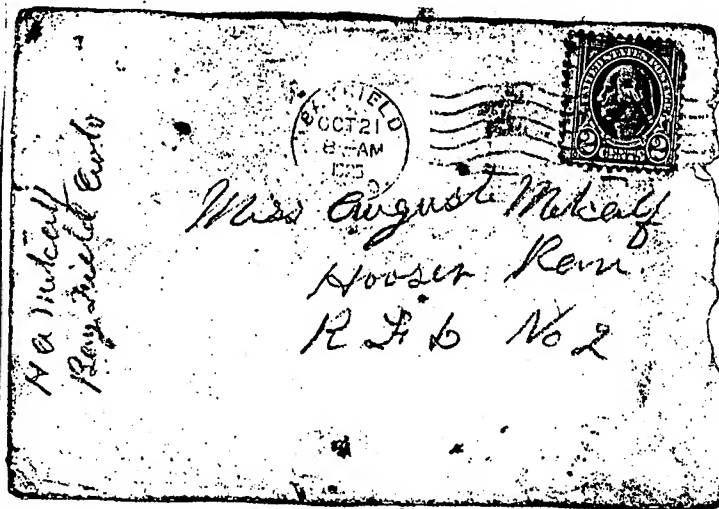 H A Metcalf
Bay Field Colo
BAYFIELD
OCT 21
8 AM
UNITED STATES POSTAGE
2 CENTS 2
Miss August Metcalf
Hooser Kan.
R F D No 2